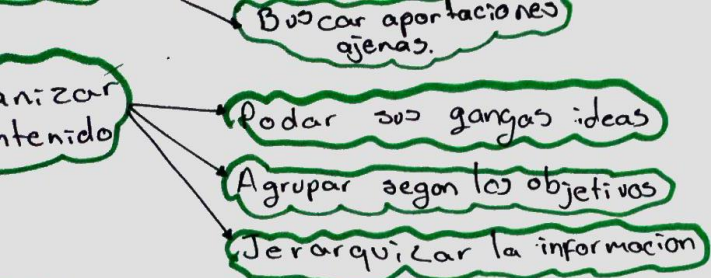 Buscar aportaciones
ajenas.
anizar
ntenido
Podar sus gangas ideas
Agrupar segon los objetivos
Jerarquizar la informacion